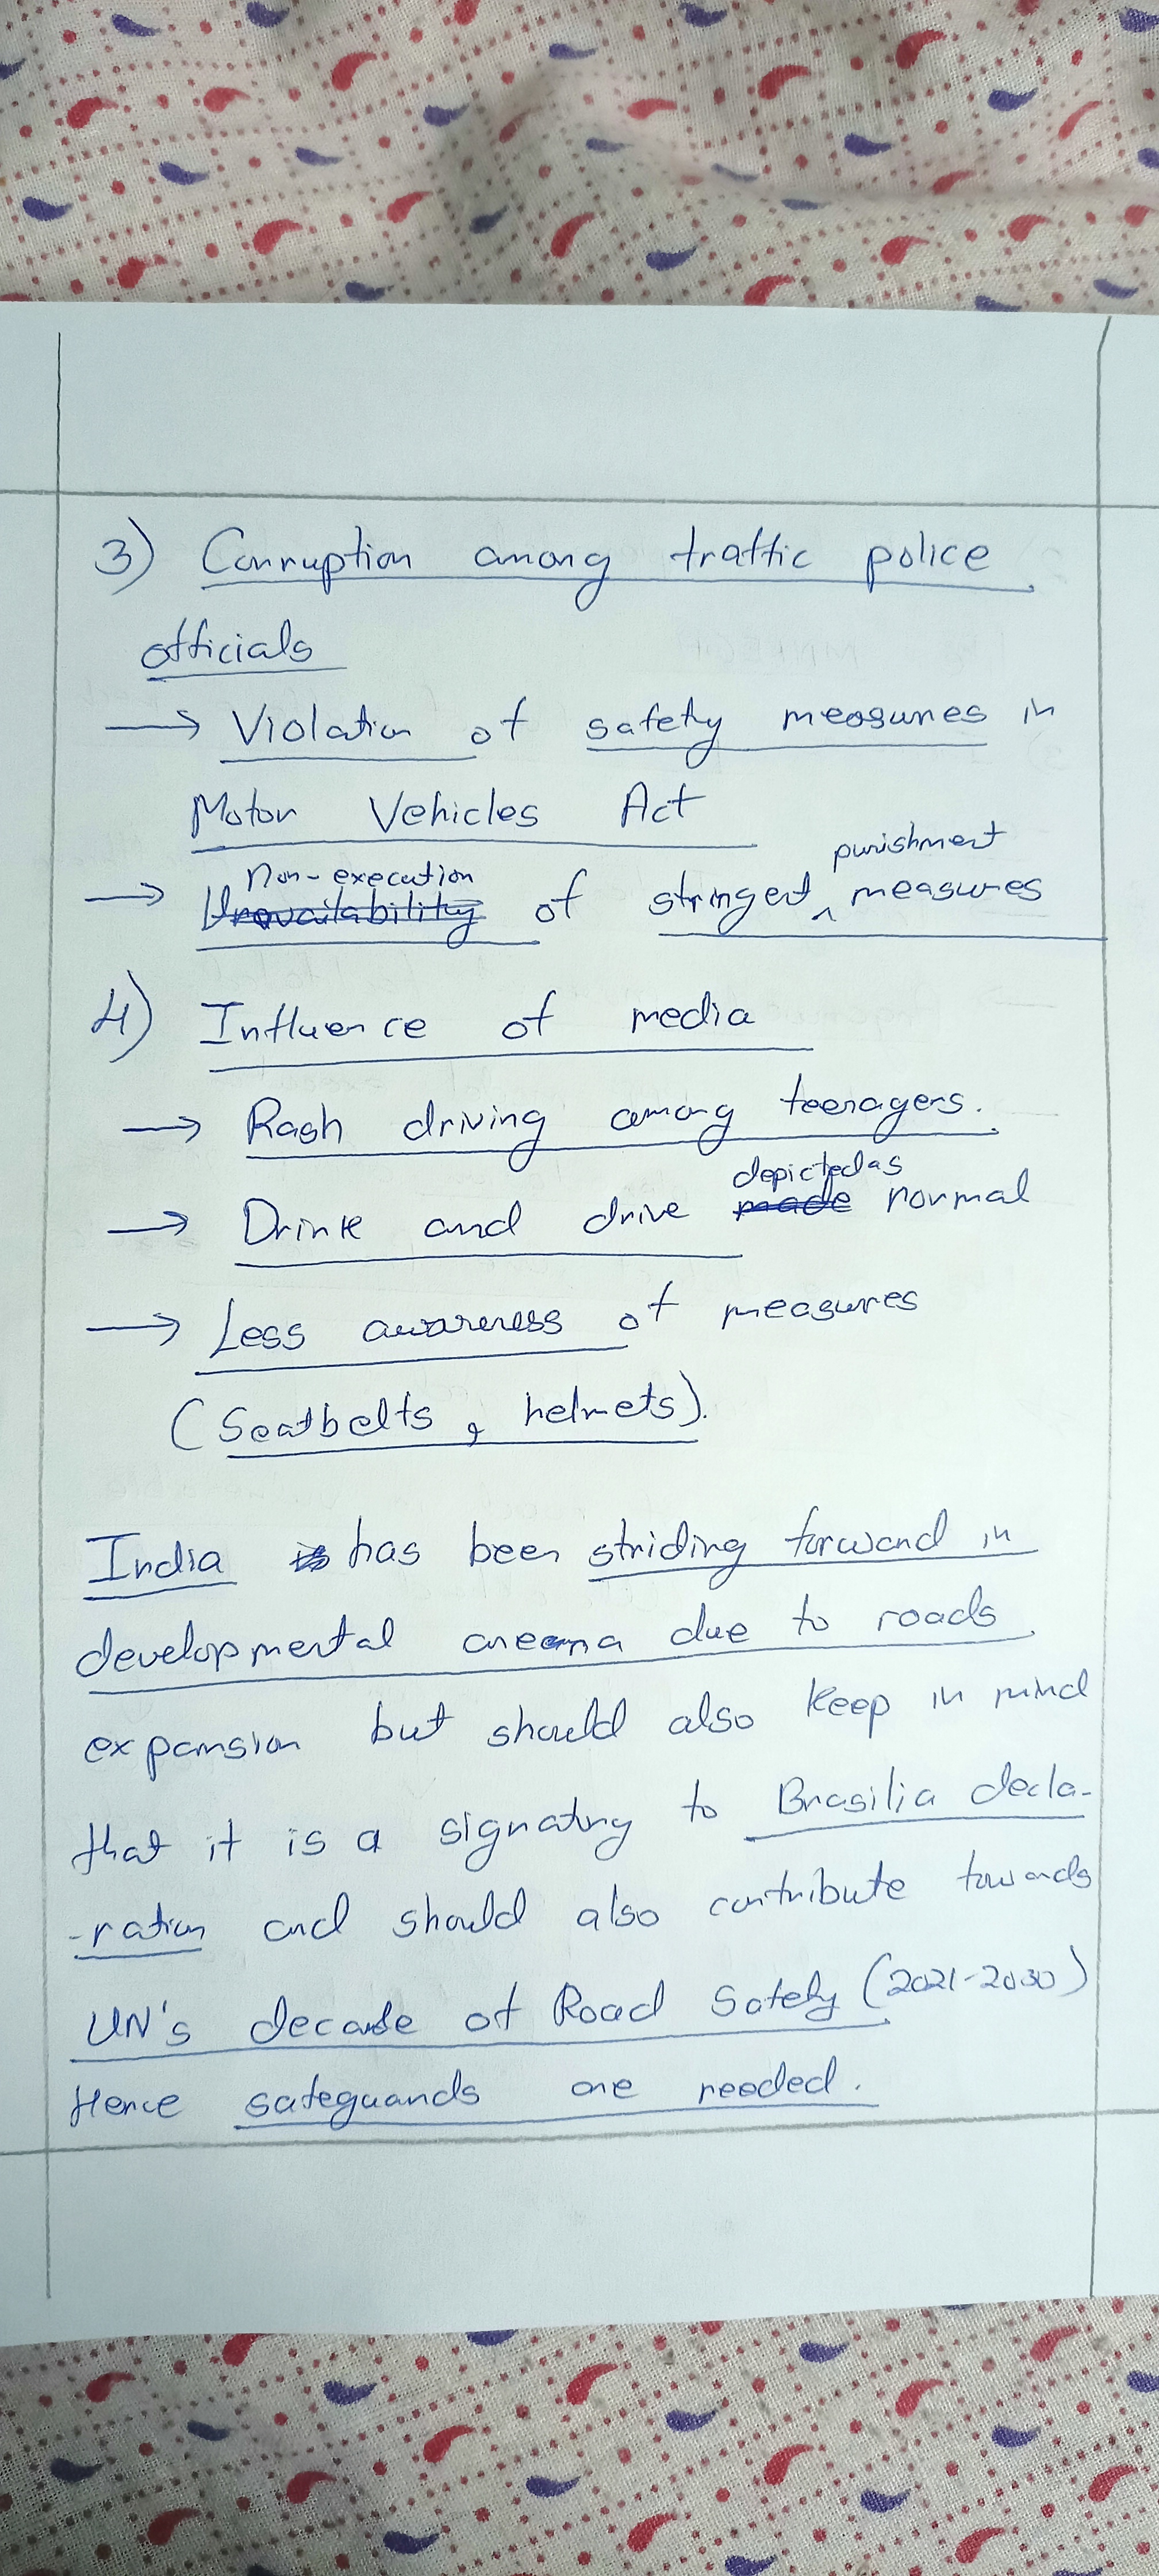 3) Corruption among traffic police
officials
→ Violation of safety measures in
Motor Vehicles Act
punishment
Non-execution
→ Unavailability of stringent ^ measures
4) Influence of media
→ Rash driving among teenagers.
depicted as
→ Drink and drive made normal
→ Less awareness of measures
(Seatbelts, helmets).
India is has been striding forward in
developmental arena due to roads
expansion but should also keep in mind
that it is a signatory to Brasilia decla-
-ration and should also contribute towards
UN's decade of Road Safety (2021-2030)
Hence safeguards are needed.